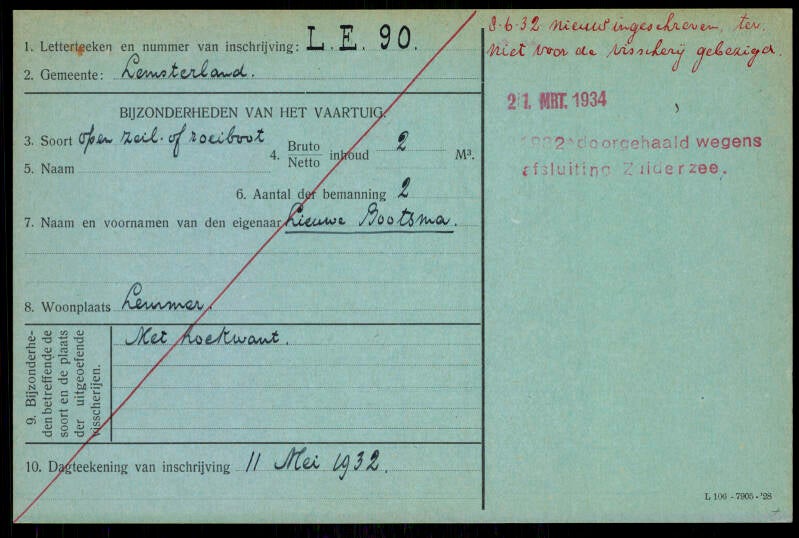 1. Letterteeken en nummer van inschrijving: L.E. 90.
2. Gemeente: Lemsterland.
BIJZONDERHEDEN VAN HET VAARTUIG.
3. Soort open zeil- of roeiboot
4. Bruto Netto inhoud 2 M³.
5. Naam
6. Aantal der bemanning 2
7. Naam en voornamen van den eigenaar Lieuwe Bootsma.
8. Woonplaats Lemmer.
9. Bijzonderhe-
den betreffende de
soort en de plaats
der uitgeoefende
visscherijen.
Met hoekwant.
10. Dagteekening van inschrijving 11 Mei 1932.
8-6-32 nieuw ingeschreven,
niet voor de visscherij gebezigd.
21. MRT. 1934
1932 doorgehaald wegens
afsluiting Zuiderzee.
L 106 - 7905 - '28